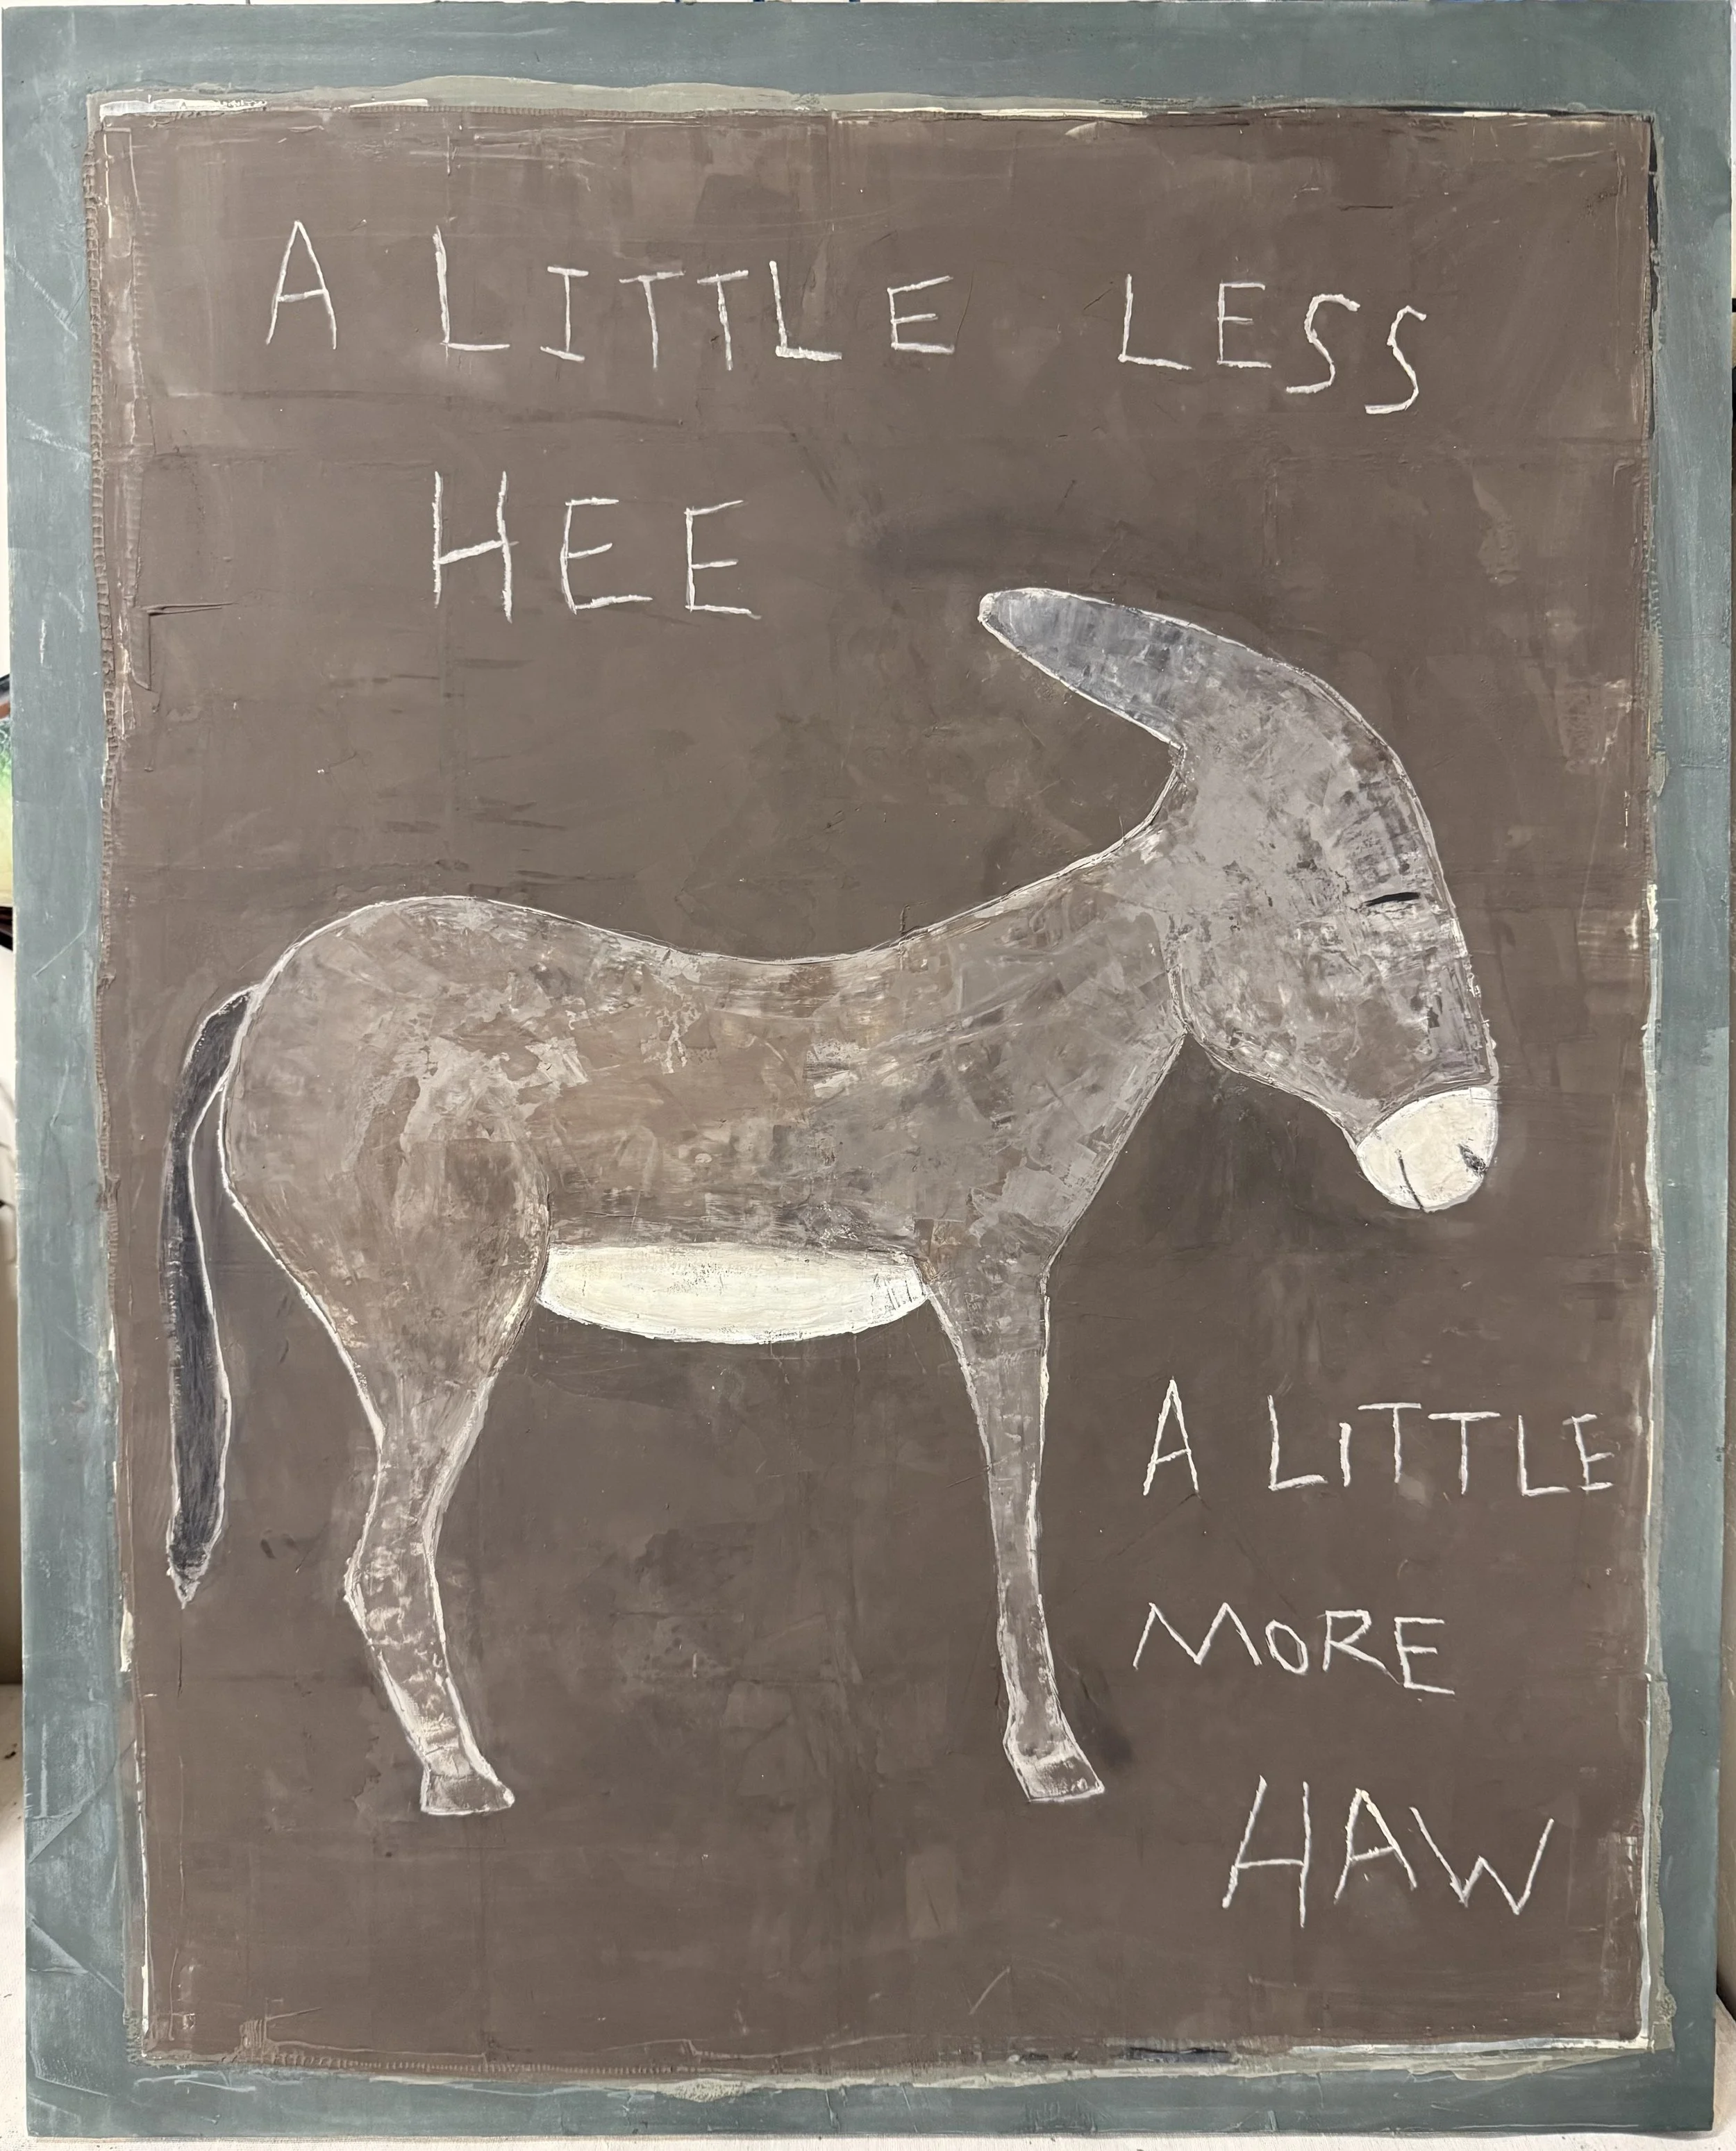 A LITTLE LESS
HEE
A LiTTLE
MORE
HAW